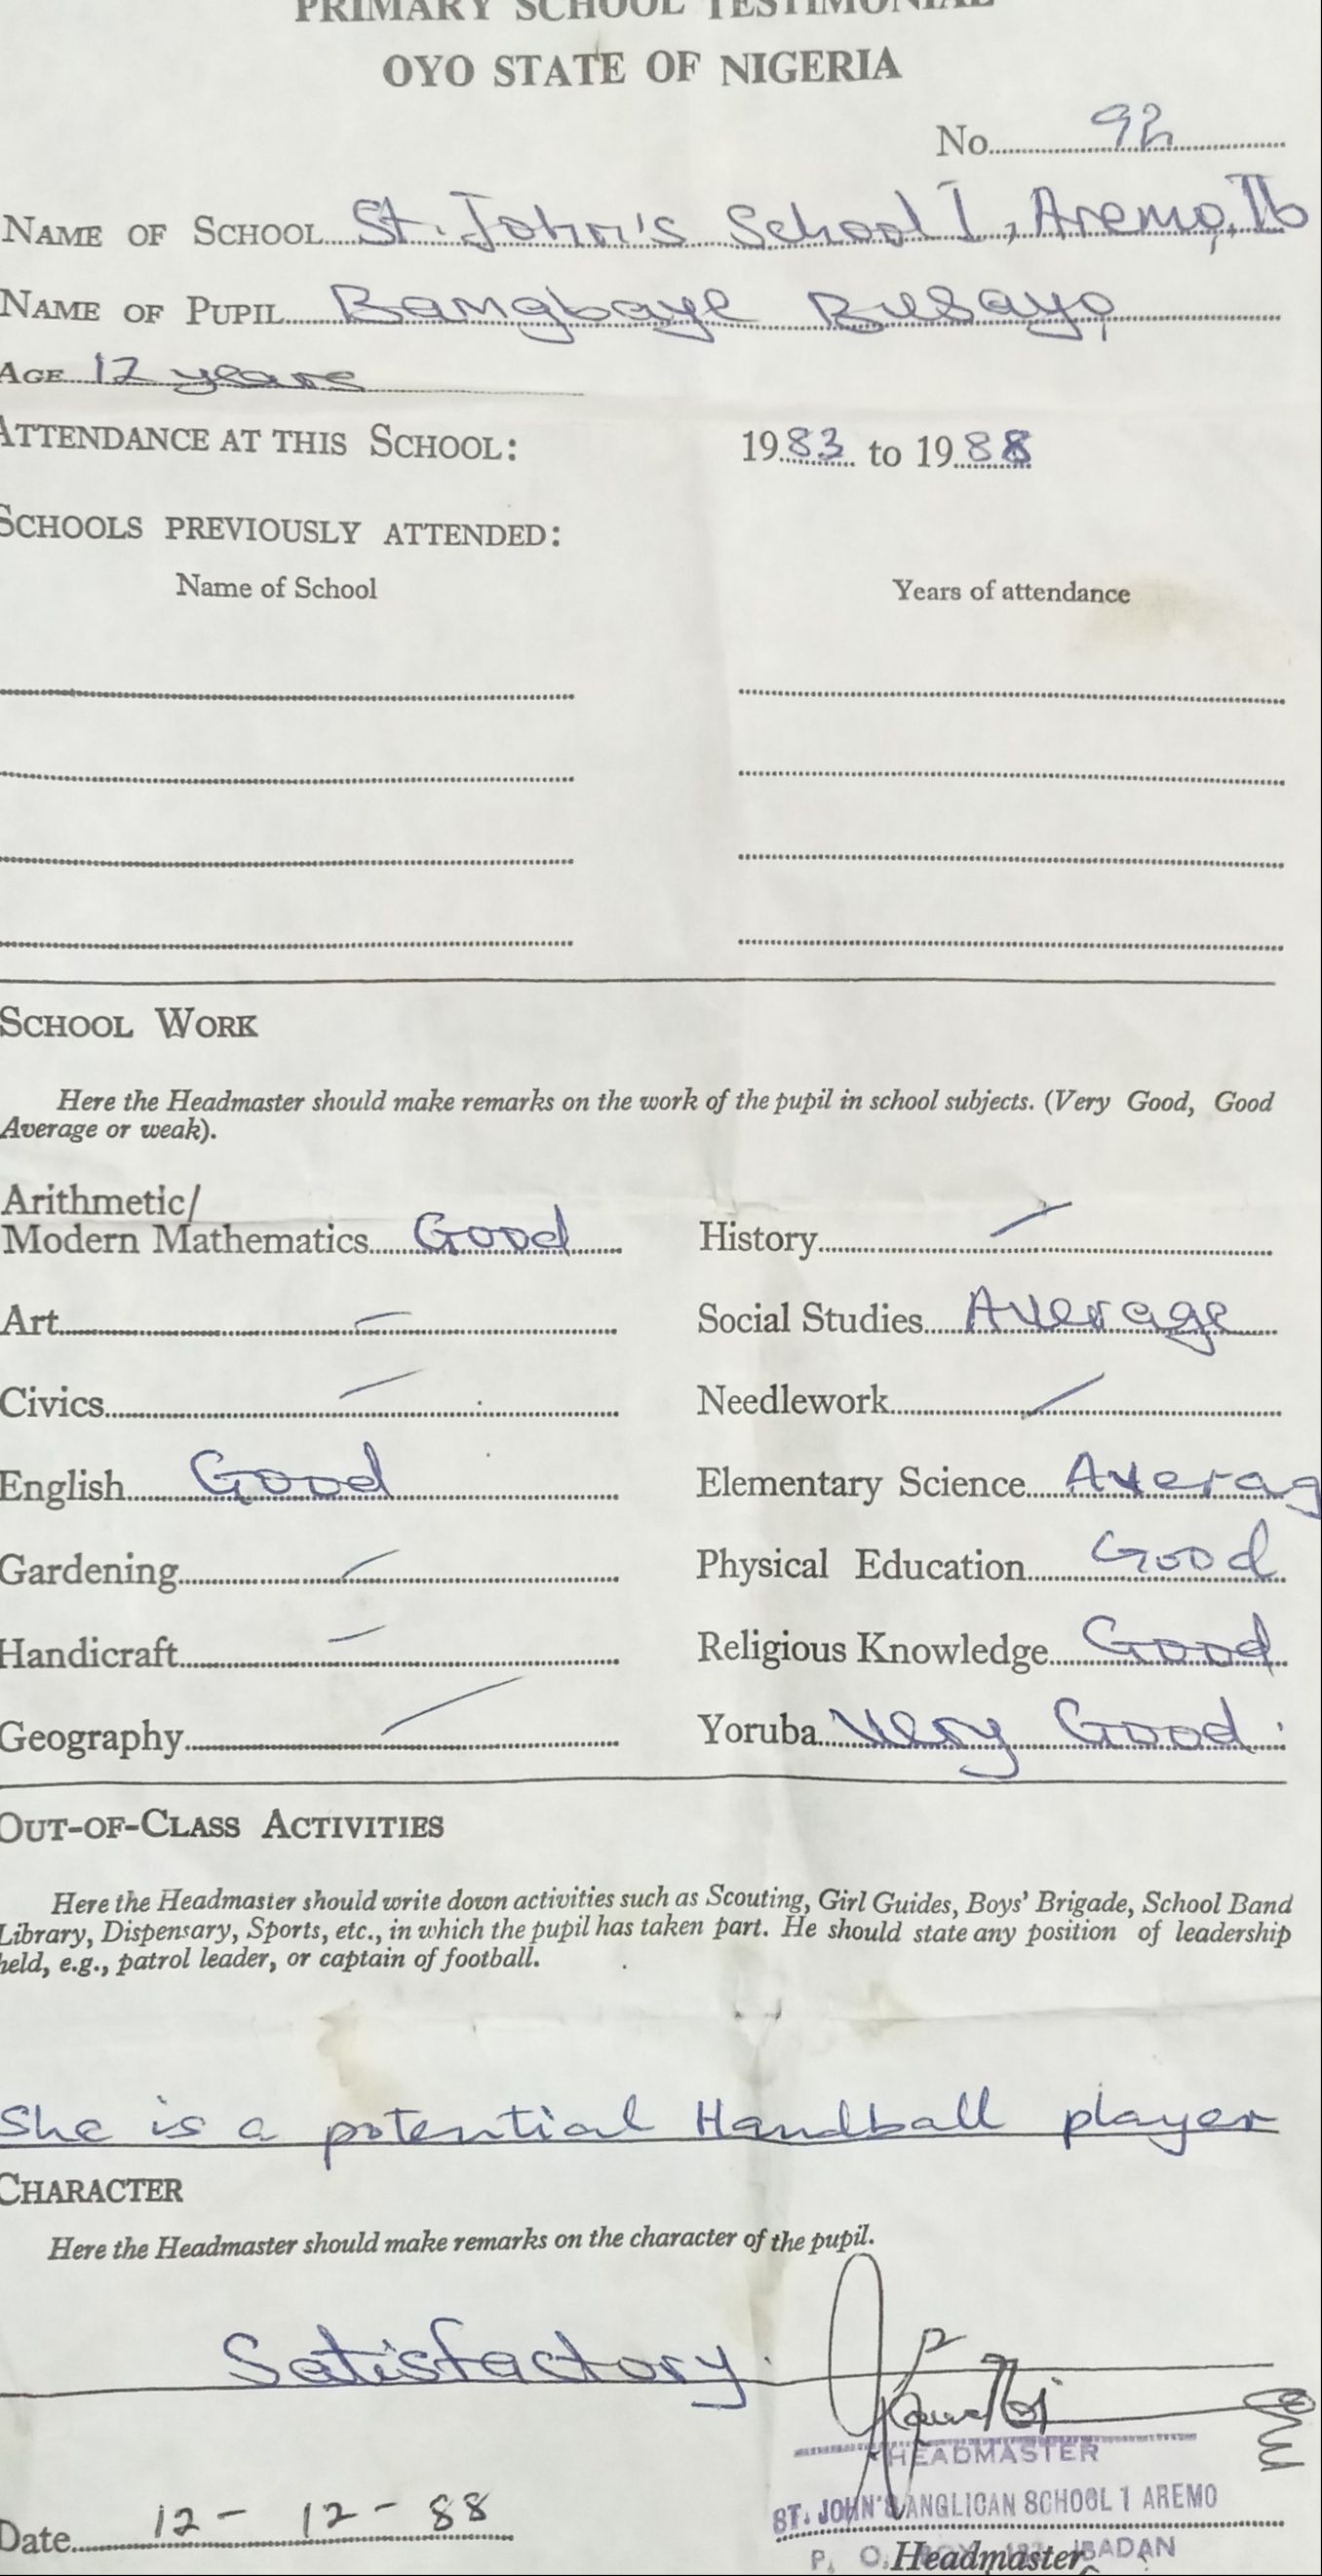 PRIMARY SCHOOL TESTIMONIAL
OYO STATE OF NIGERIA
No. 92
NAME OF SCHOOL St. John's School I, Aremo, Ib
NAME OF PUPIL Bamgbaye Busayo
AGE 12 years
ATTENDANCE AT THIS SCHOOL: 1983 to 1988
SCHOOLS PREVIOUSLY ATTENDED:
Name of School Years of attendance
SCHOOL WORK
Here the Headmaster should make remarks on the work of the pupil in school subjects. (Very Good, Good
Average or weak).
Arithmetic/
Modern Mathematics Good History
Art Social Studies Average
Civics Needlework
English Good Elementary Science Averag
Gardening Physical Education Good
Handicraft Religious Knowledge Good
Geography Yoruba Very Good.
OUT-OF-CLASS ACTIVITIES
Here the Headmaster should write down activities such as Scouting, Girl Guides, Boys' Brigade, School Band
Library, Dispensary, Sports, etc., in which the pupil has taken part. He should state any position of leadership
held, e.g., patrol leader, or captain of football.
She is a potential Handball player
CHARACTER
Here the Headmaster should make remarks on the character of the pupil.
Satisfactory.
HEADMASTER
ST. JOHN'S ANGLICAN SCHOOL 1 AREMO
Date 12-12-88
P. O. BOX IBADAN
Headmaster